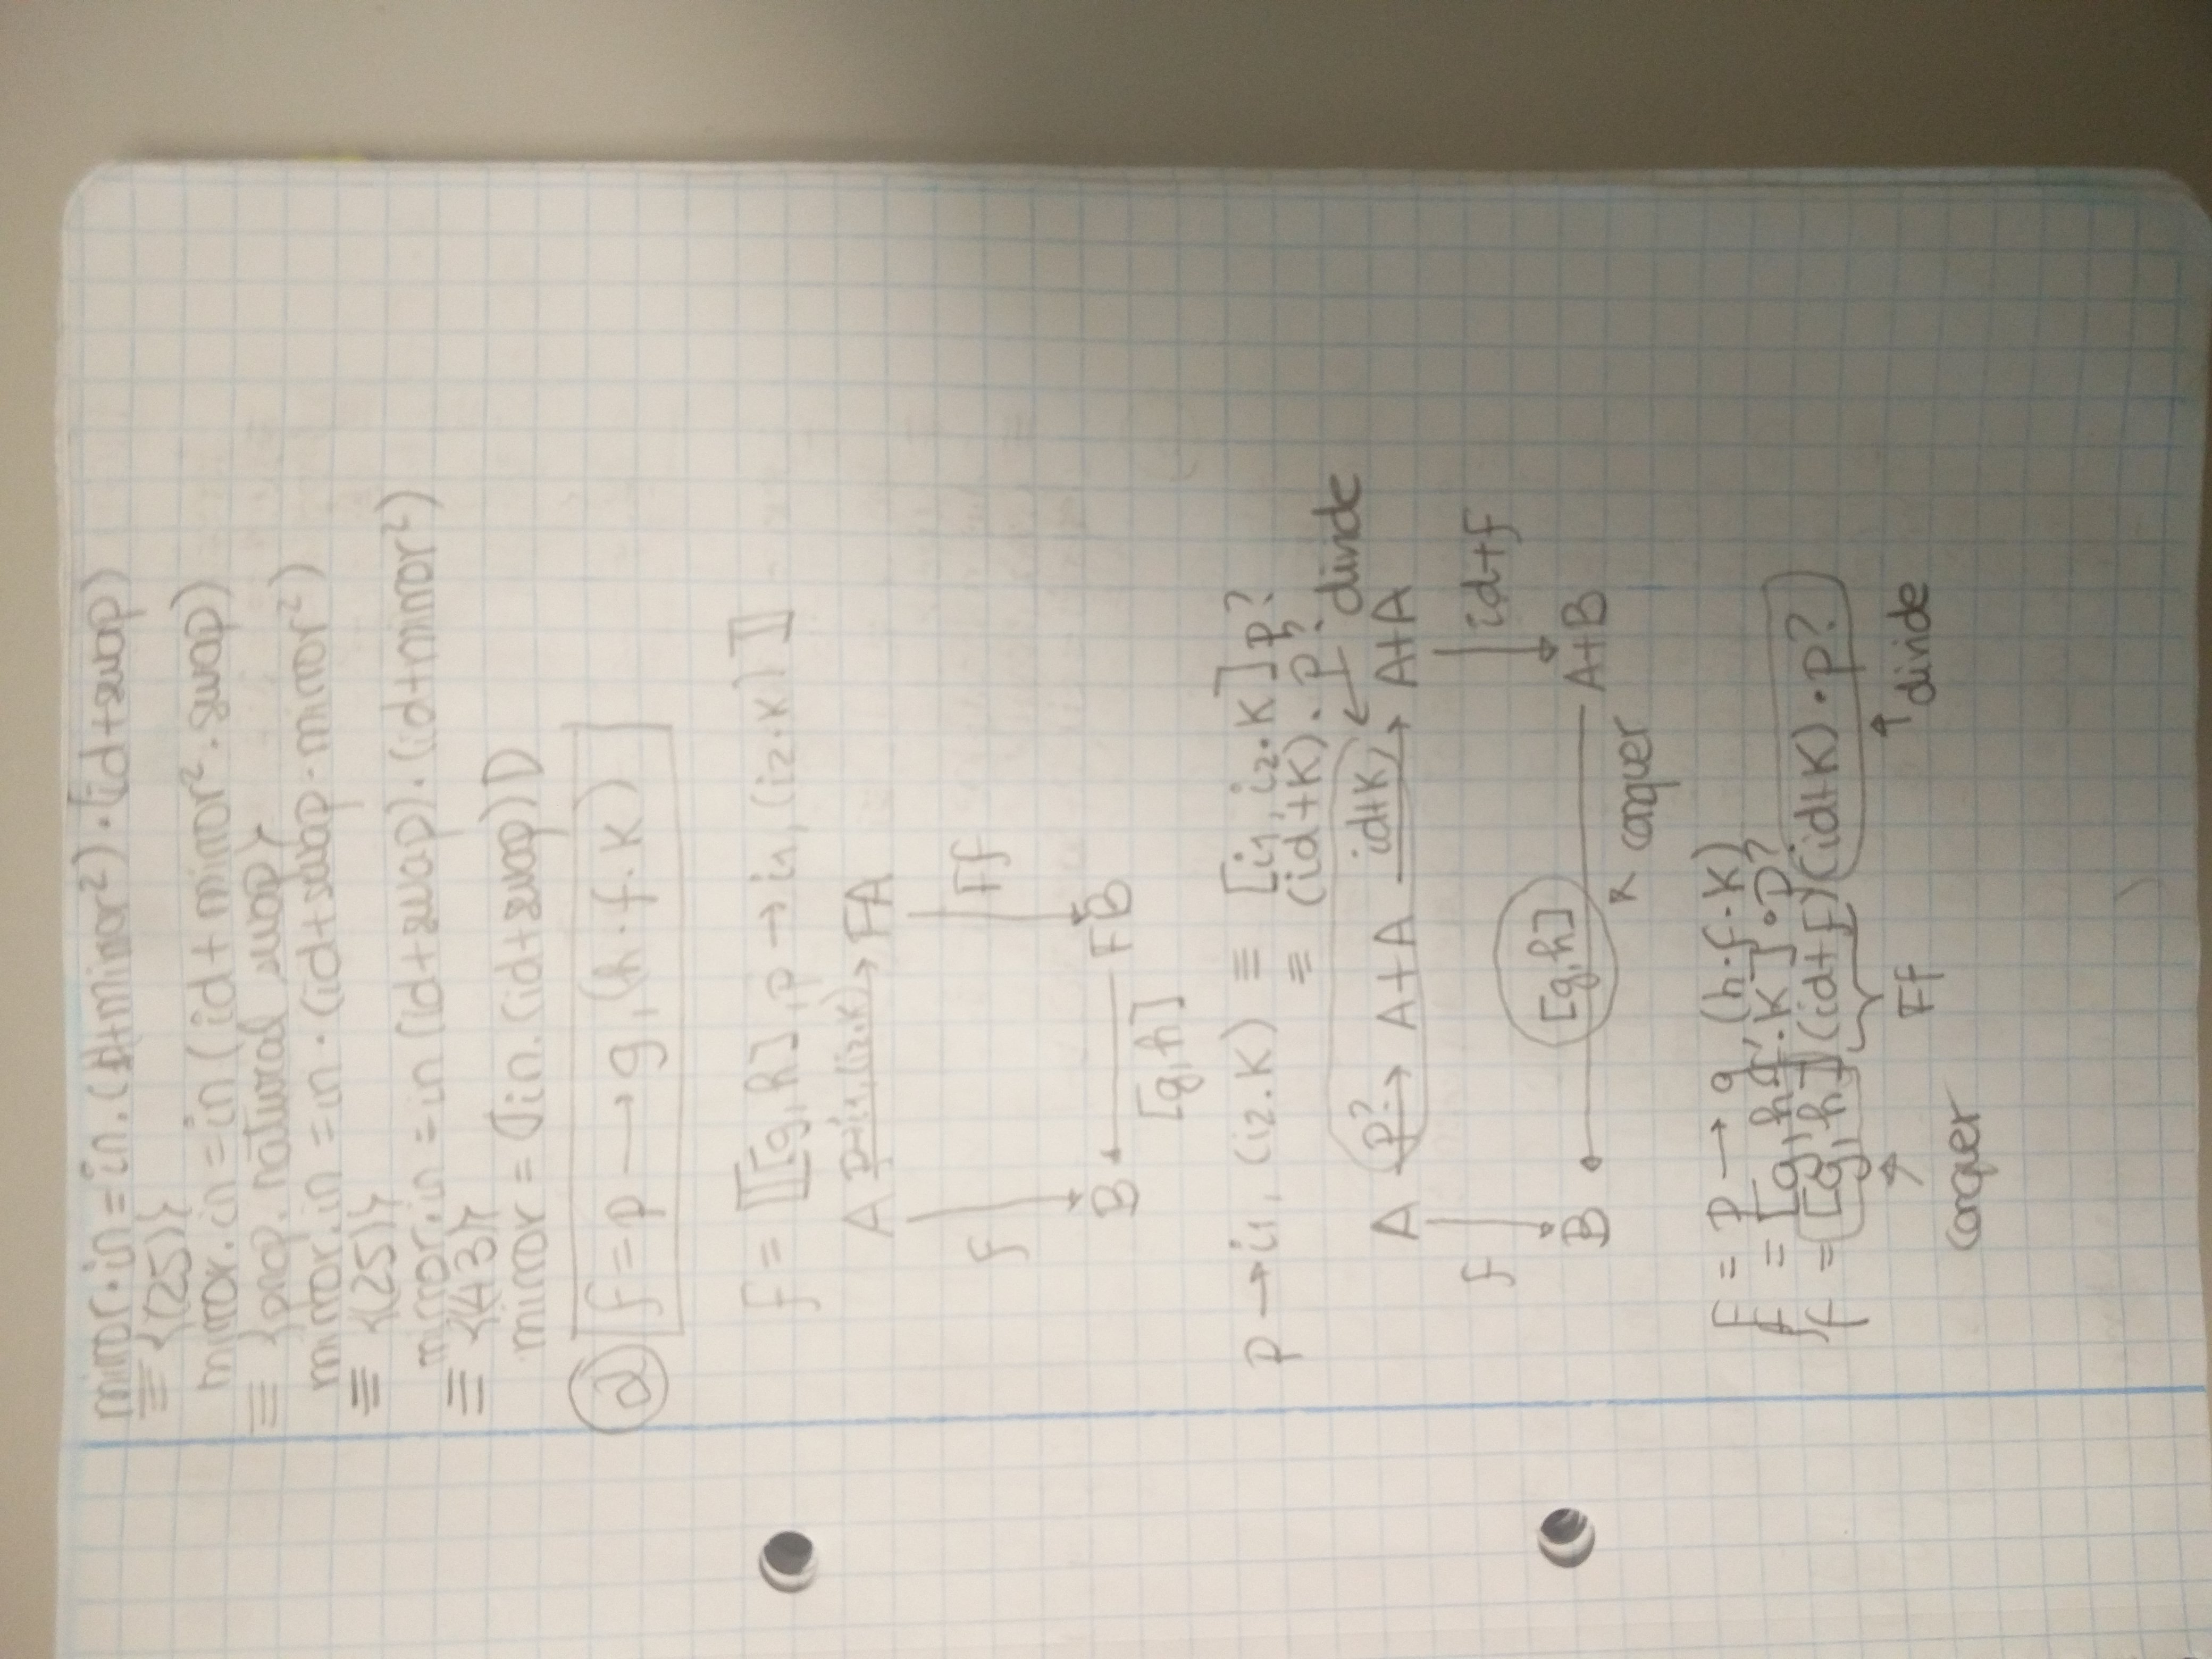 mirror·in = in.(id+mirror²)·(id+swap)
≡ {(25)}
mirror.in = in (id + mirror².swap)
≡ {prop. natural swap}
mirror.in = in · (id+swap·mirror²)
≡ {(25)}
mirror.in = in (id+swap).(id+mirror²)
≡ {43}
mirror = (|in.(id+swap)|)
② f = p → g, (h·f·K)
f = ⟦[g, h], p → i1, (i2.K)⟧
A p→i1,(i2.K) FA
f Ff
B FB
[g, h]
p → i1, (i2.K) ≡ [i1, i2.K] p?
≡ (id+K). p?
divide
A p? A+A id+K A+A
f id+f
B [g, h] A+B
conquer
f = p → g, (h·f·K)
f = [g, h·f·K]·p?
f = [g, h] (id+f) (id+K)·p?
Ff divide
conquer